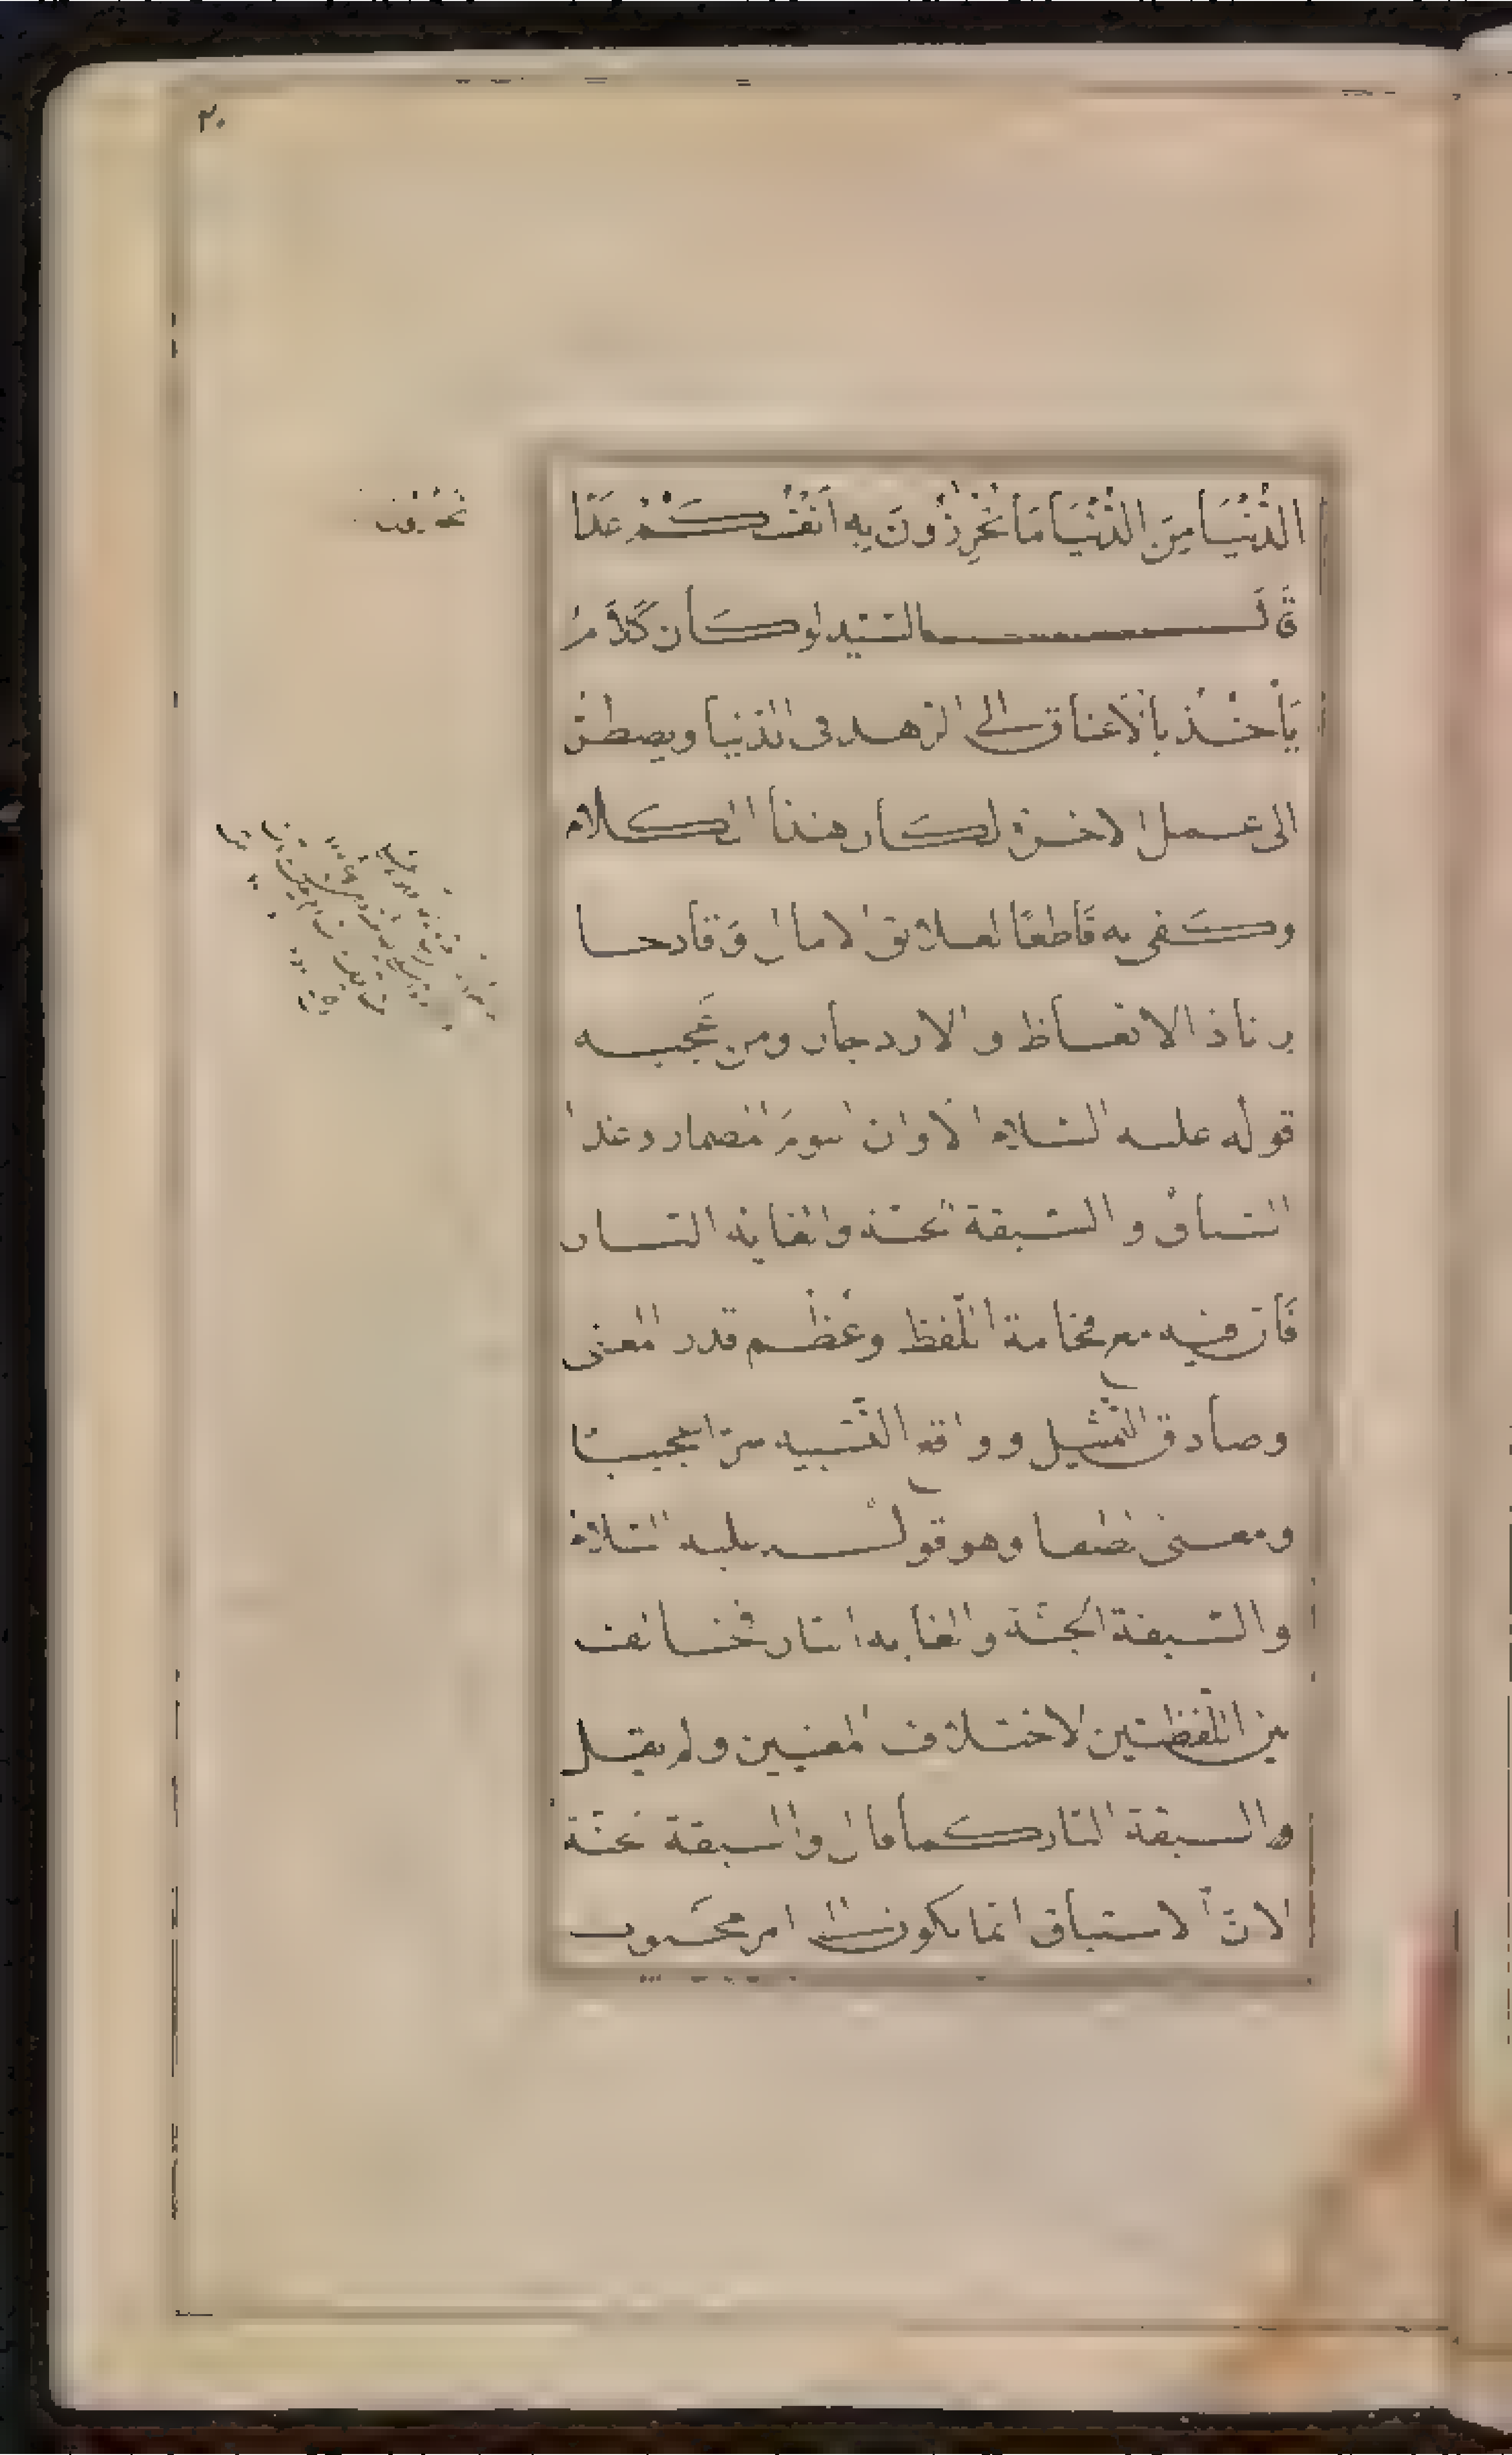 ٣٠
الدُّنْيَا مِنَ الدُّنْيَا مَا تُحْرِزُونَ بِهِ أَنْفُسَكُمْ غَدًا
قَالَ السَّيِّد لو كَان كَلَامٌ
يَأْخُذ بالأعناق إلى الزهد فى الدنيا ويضطرّ
الى عمل الاخرة لكان هذا الكلام
وكَفى به قَاطعًا لعلائق الامال وَقادحا
زناد الاتعاظ والازدجار ومن عَجيبه
قوله عليه السلام الا وان اليومَ المضمار وغدا
السباق والسبقة الجنة والغاية النار
فَان فيه مع فخامة اللّفظ وعُظْم قدر المعنى
وصادق التّمثيل وواقع التّشبيه سرّا عجيبا
ومعنى لطيفا وهو قوله عليه السّلام
والسّبقة الجنّة والغاية النار فخالف
بين اللّفظتين لاختلاف المعنيين ولم يقل
والسبقة النار كما قال والسبقة الجنّة
لانّ الاستباق انما يكون الى امر محبوب